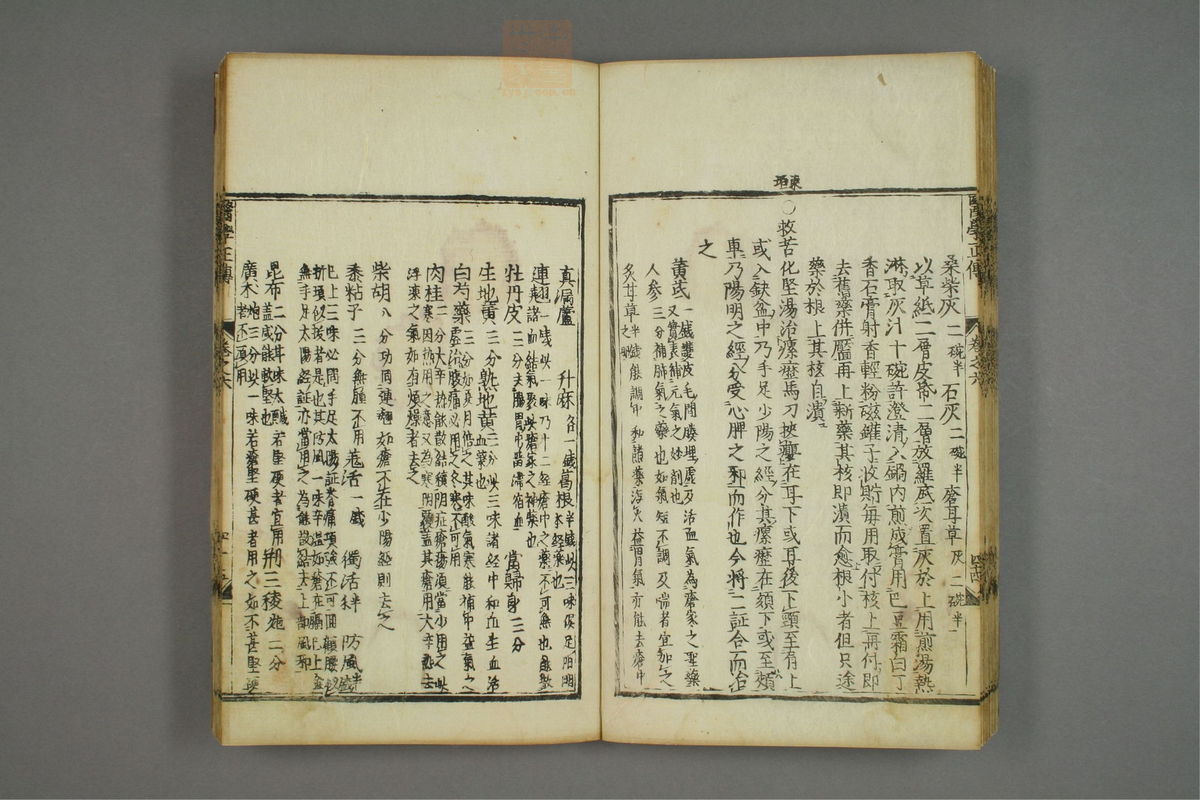 醫學正傳 卷之六
桑柴灰二碗半 石灰二碗半 蒼耳草灰二碗半
以草紙二層皮帋二層放羅底次置灰於上用煎湯熱
淋取灰汁十碗許澄清入鍋内煎成膏用巴豆霜白丁
香石膏射香輕粉磁罐子收貯每用取付核上再付即
去舊藥併靨再上新藥其核即潰而愈根小者但只途
藥於根上其核自潰
東垣
○救苦化堅湯治瘰癧馬刀挾癭在耳下或耳後下頸至肩上
或入缺盆中乃手足少陽之經分其瘰癧在頦下或至頰
車乃陽明之經分受心脾之邪而作也今將二証合而治
之
黄芪一錢護皮毛間腠理虛及活血氣為瘡家之聖藥
又實表補元氣之妙剤也
人參三分補肺氣之藥也如氣短不調及喘者宜加之
炙甘草半錢能調中和諸藥瀉火益胃氣亦能去瘡中
之邪
真漏蘆 升麻各一錢葛根半錢以三味俱足陽明
本經藥也
連翹一錢此一味乃十二經瘡中之藥不可無也能散
諸血結氣聚此瘡家之神藥也
牡丹皮三分去腸胃中留滯宿血 當歸身三分
生地黄三分熟地黄三分此三味諸經中和血生血涼
血藥也
白芍藥三分如夏月倍之其味酸氣寒能補中益氣之
虛治腹痛必用之冬寒不可用
肉桂二分大辛熱能散結積陰症瘡瘍須當少用之此
寒因熱用之意又為寒陰覆蓋其瘡用大辛熱去
浮凍之氣如有煩燥者去之
柴胡八分功同連翹如瘡不在少陽經則去之
黍粘子三分無腫不用羌活一錢 獨活 防風各半錢
已上三味必關手足太陽証脊痛項強不可回顧腰似
折項似拔者是也其防風一味辛温如瘡在膈已上
無手足太陽經証亦當用之為能散結去上部風邪
昆布二分其味大鹹若瘡堅硬者宜用 荆三稜炮二分
蓋鹹能軟堅也
廣朮炮三分此一味若瘡堅硬甚者用之如不甚堅硬
者不須用
醫學正傳 卷之六